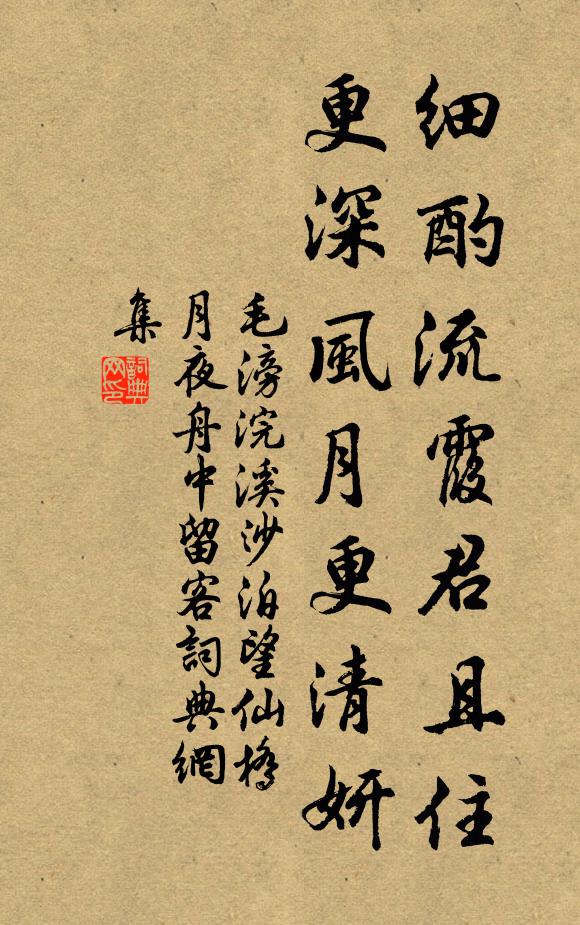 細酌流霞君且住
更深風月更清妍
毛滂浣溪沙泊望仙橋
月夜舟中留客詞典網
集
詞典
网印